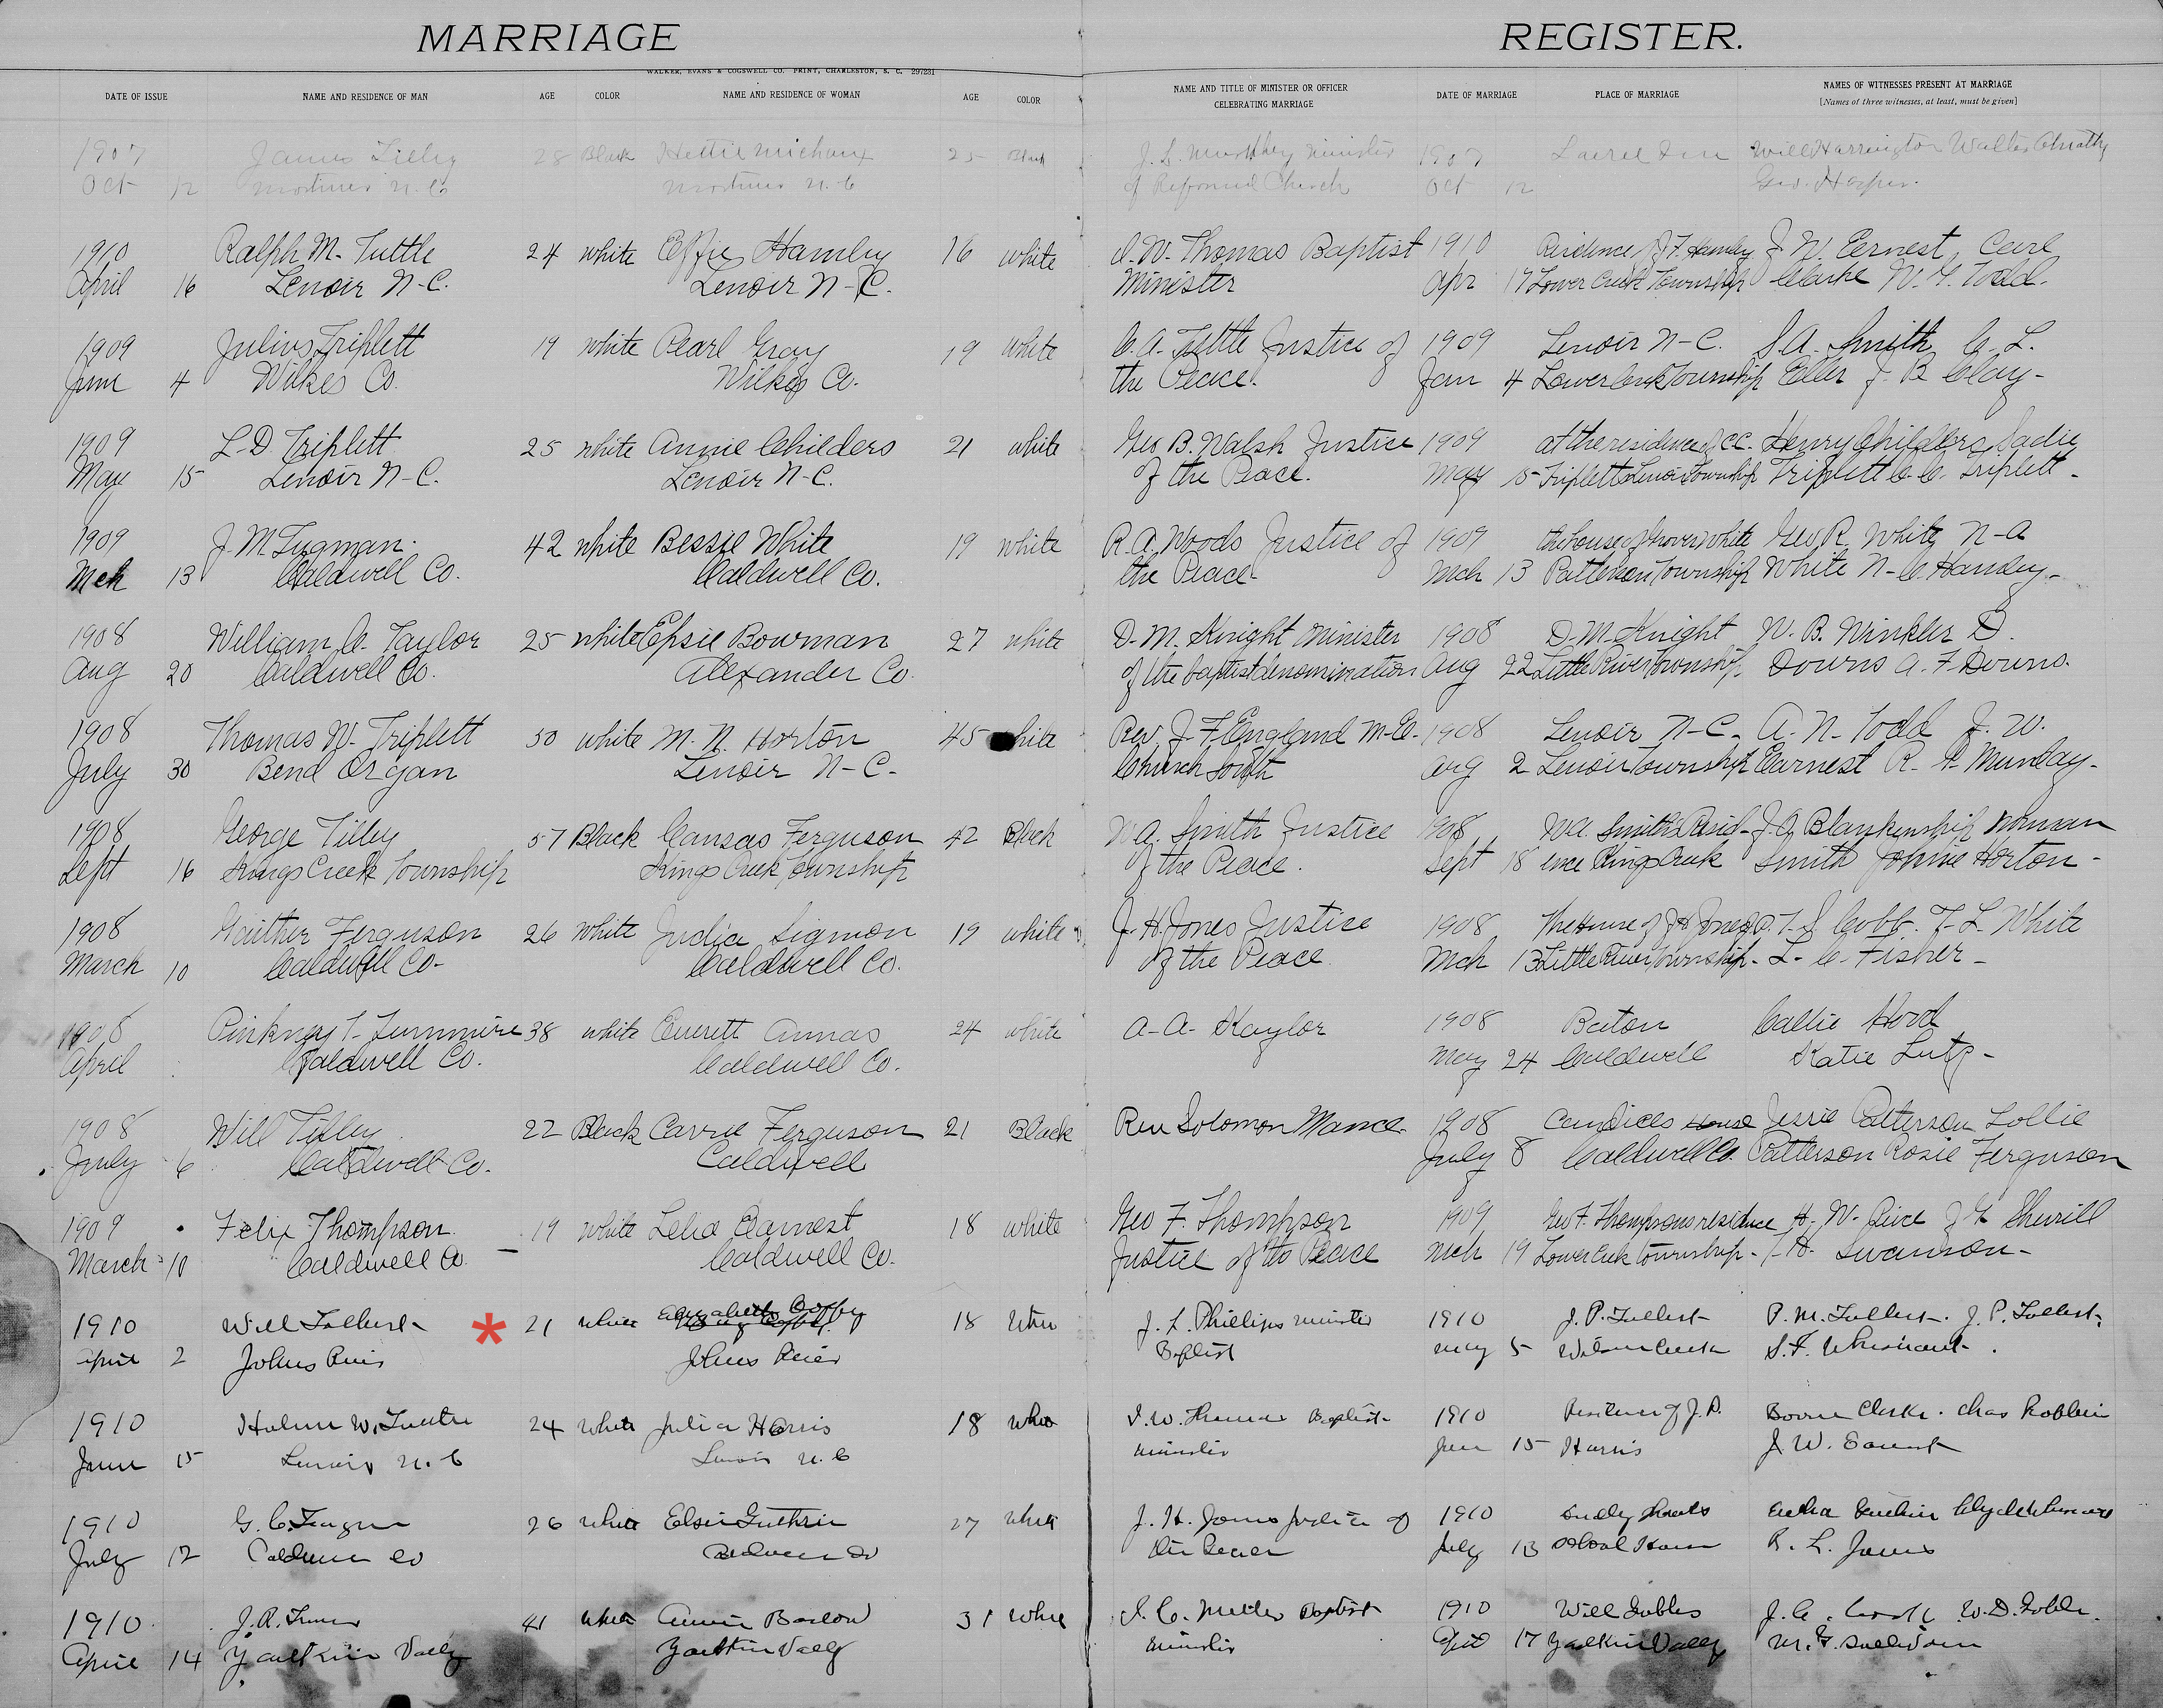 MARRIAGE REGISTER.
WALKER, EVANS & COGSWELL CO. PRINT, CHARLESTON, S. C. 297231
DATE OF ISSUE NAME AND RESIDENCE OF MAN AGE COLOR NAME AND RESIDENCE OF WOMAN AGE COLOR NAME AND TITLE OF MINISTER OR OFFICER CELEBRATING MARRIAGE DATE OF MARRIAGE PLACE OF MARRIAGE NAMES OF WITNESSES PRESENT AT MARRIAGE
[Names of three witnesses, at least, must be given]
1907 James Lilly 28 Black Hettie Michaux 25 Black J. L. Murphy Minister 1907 Will Harrington Walter
Oct 12 Mortimer N. C. Mortimer N. C. of Reformed Church Oct 12 Geo. Harper.
1910 Ralph M. Tuttle 24 white Effie Hamby 16 white I. W. Thomas Baptist 1910 Residence of J. F. Hamby J. W. Earnest, Carl
April 16 Lenoir N-C. Lenoir N-C. Minister Apr 17 Lower Creek Township Clarke W. Y. Todd.
1909 Julius Triplett 19 white Pearl Gray 19 white C. A. Tuttle Justice of 1909 Lenoir N-C. S. A. Smith C. L.
June 4 Wilkes Co. Wilkes Co. the Peace. Jan 4 Lower Creek Township Eller J. B. Clay-
1909 L. D. Triplett 25 white Annie Childers 21 white Geo B. Walsh Justice 1909 at the residence of C.C. Henry Childers, Sadie
May 15 Lenoir N-C. Lenoir N-C. of the Peace. May 15 Triplett Lenoir Township Triplett C. C. Triplett-
1909 J. M. Tugman. 42 white Bessie White 19 white R. A. Woods Justice of 1909 the house of Grover White Geo R. White N-A
Mch 13 Caldwell Co. Caldwell Co. the Peace- Mch 13 Patterson Township White N-C. Handy-
1908 William C. Taylor 25 white Epsie Bowman 27 white D. M. Knight Minister 1908 D. M. Knight W. B. Winkler D.
Aug 20 Caldwell Co. Alexander Co. of the baptist denomination Aug 22 Little River Township, Downs A. F. Downs.
1908 Thomas W. Triplett 50 white M. N. Horton 45 white Rev J. F. England M-E. 1908 Lenoir N-C. A. N. Todd J. W.
July 30 Bend Organ Lenoir N-C- Church South Aug 2 Lenoir Township Earnest R. Munday-
1908 George Tilley 57 Black Cansas Ferguson 42 Black W. A. Smith Justice 1908 W. A. Smith's Resid- J. A. Blankenship Norman
Sept 16 Kings Creek Township Kings Creek Township of the Peace. Sept 18 ence Kings Creek Smith Johnie Horton-
1908 Gaither Ferguson 26 white Judia Sigmon 19 white J. H. Jones Justice 1908 The House of J. H. Jones T. S. Cobb. T. L. White
March 10 Caldwell Co- Caldwell Co. of the Peace Mch 13 Little River Township- L. C. Fisher-
1908 Pinkney T. Turnmire 38 white Everett Annas 24 white A. A. Kaylor 1908 Baton Callie Hood
April Caldwell Co. Caldwell Co. May 24 Caldwell Katie Lutz-
1908 Will Tilley 22 Black Carrie Ferguson 21 Black Rev Solomon Mance. 1908 Candices House Jessie Patterson Lollie
July 6 Caldwell Co. Caldwell July 8 Caldwell Co. Patterson Rosie Ferguson
1909 Felix Thompson 19 white Lelia Earnest 18 white Geo F. Thompson 1909 Geo F. Thompsons residence H. W. Price J. Y. Sherrill
March 10 Caldwell Co. Caldwell Co. Justice of the Peace Mch 19 Lower Creek Township- Swanson-
1910 Will Tolbert * 21 white Elizabeth Coffey 18 White J. L. Phillips minister 1910 J. P. Tolbert P. M. Tolbert. J. P. Tolbert.
April 2 Johns River Johns River Baptist May 5 Wilson Creek S. F. Whisnant.
1910 W. Tuttle 24 white Julia Harris 18 white I. W. Thomas Baptist 1910 Residence of J. D. Boone Clarke. Chas Robbins
June 15 Lenoir N. C Lenoir N. C minister June 15 Harris J. W. Earnest
1910 G. C. Teague 26 white Elsie Guthrie 27 white J. H. Jones Justice of 1910 Dudly Shoals
July 12 Caldwell Co Caldwell Co the Peace July 13 School House R. L. Jones
1910 J. R. 41 white Annie Barlow 31 white I. C. Miller Baptist 1910 Will J. C. W. D.
April 14 Yadkin Vally Yadkin Vally minister April 17 Yadkin Vally